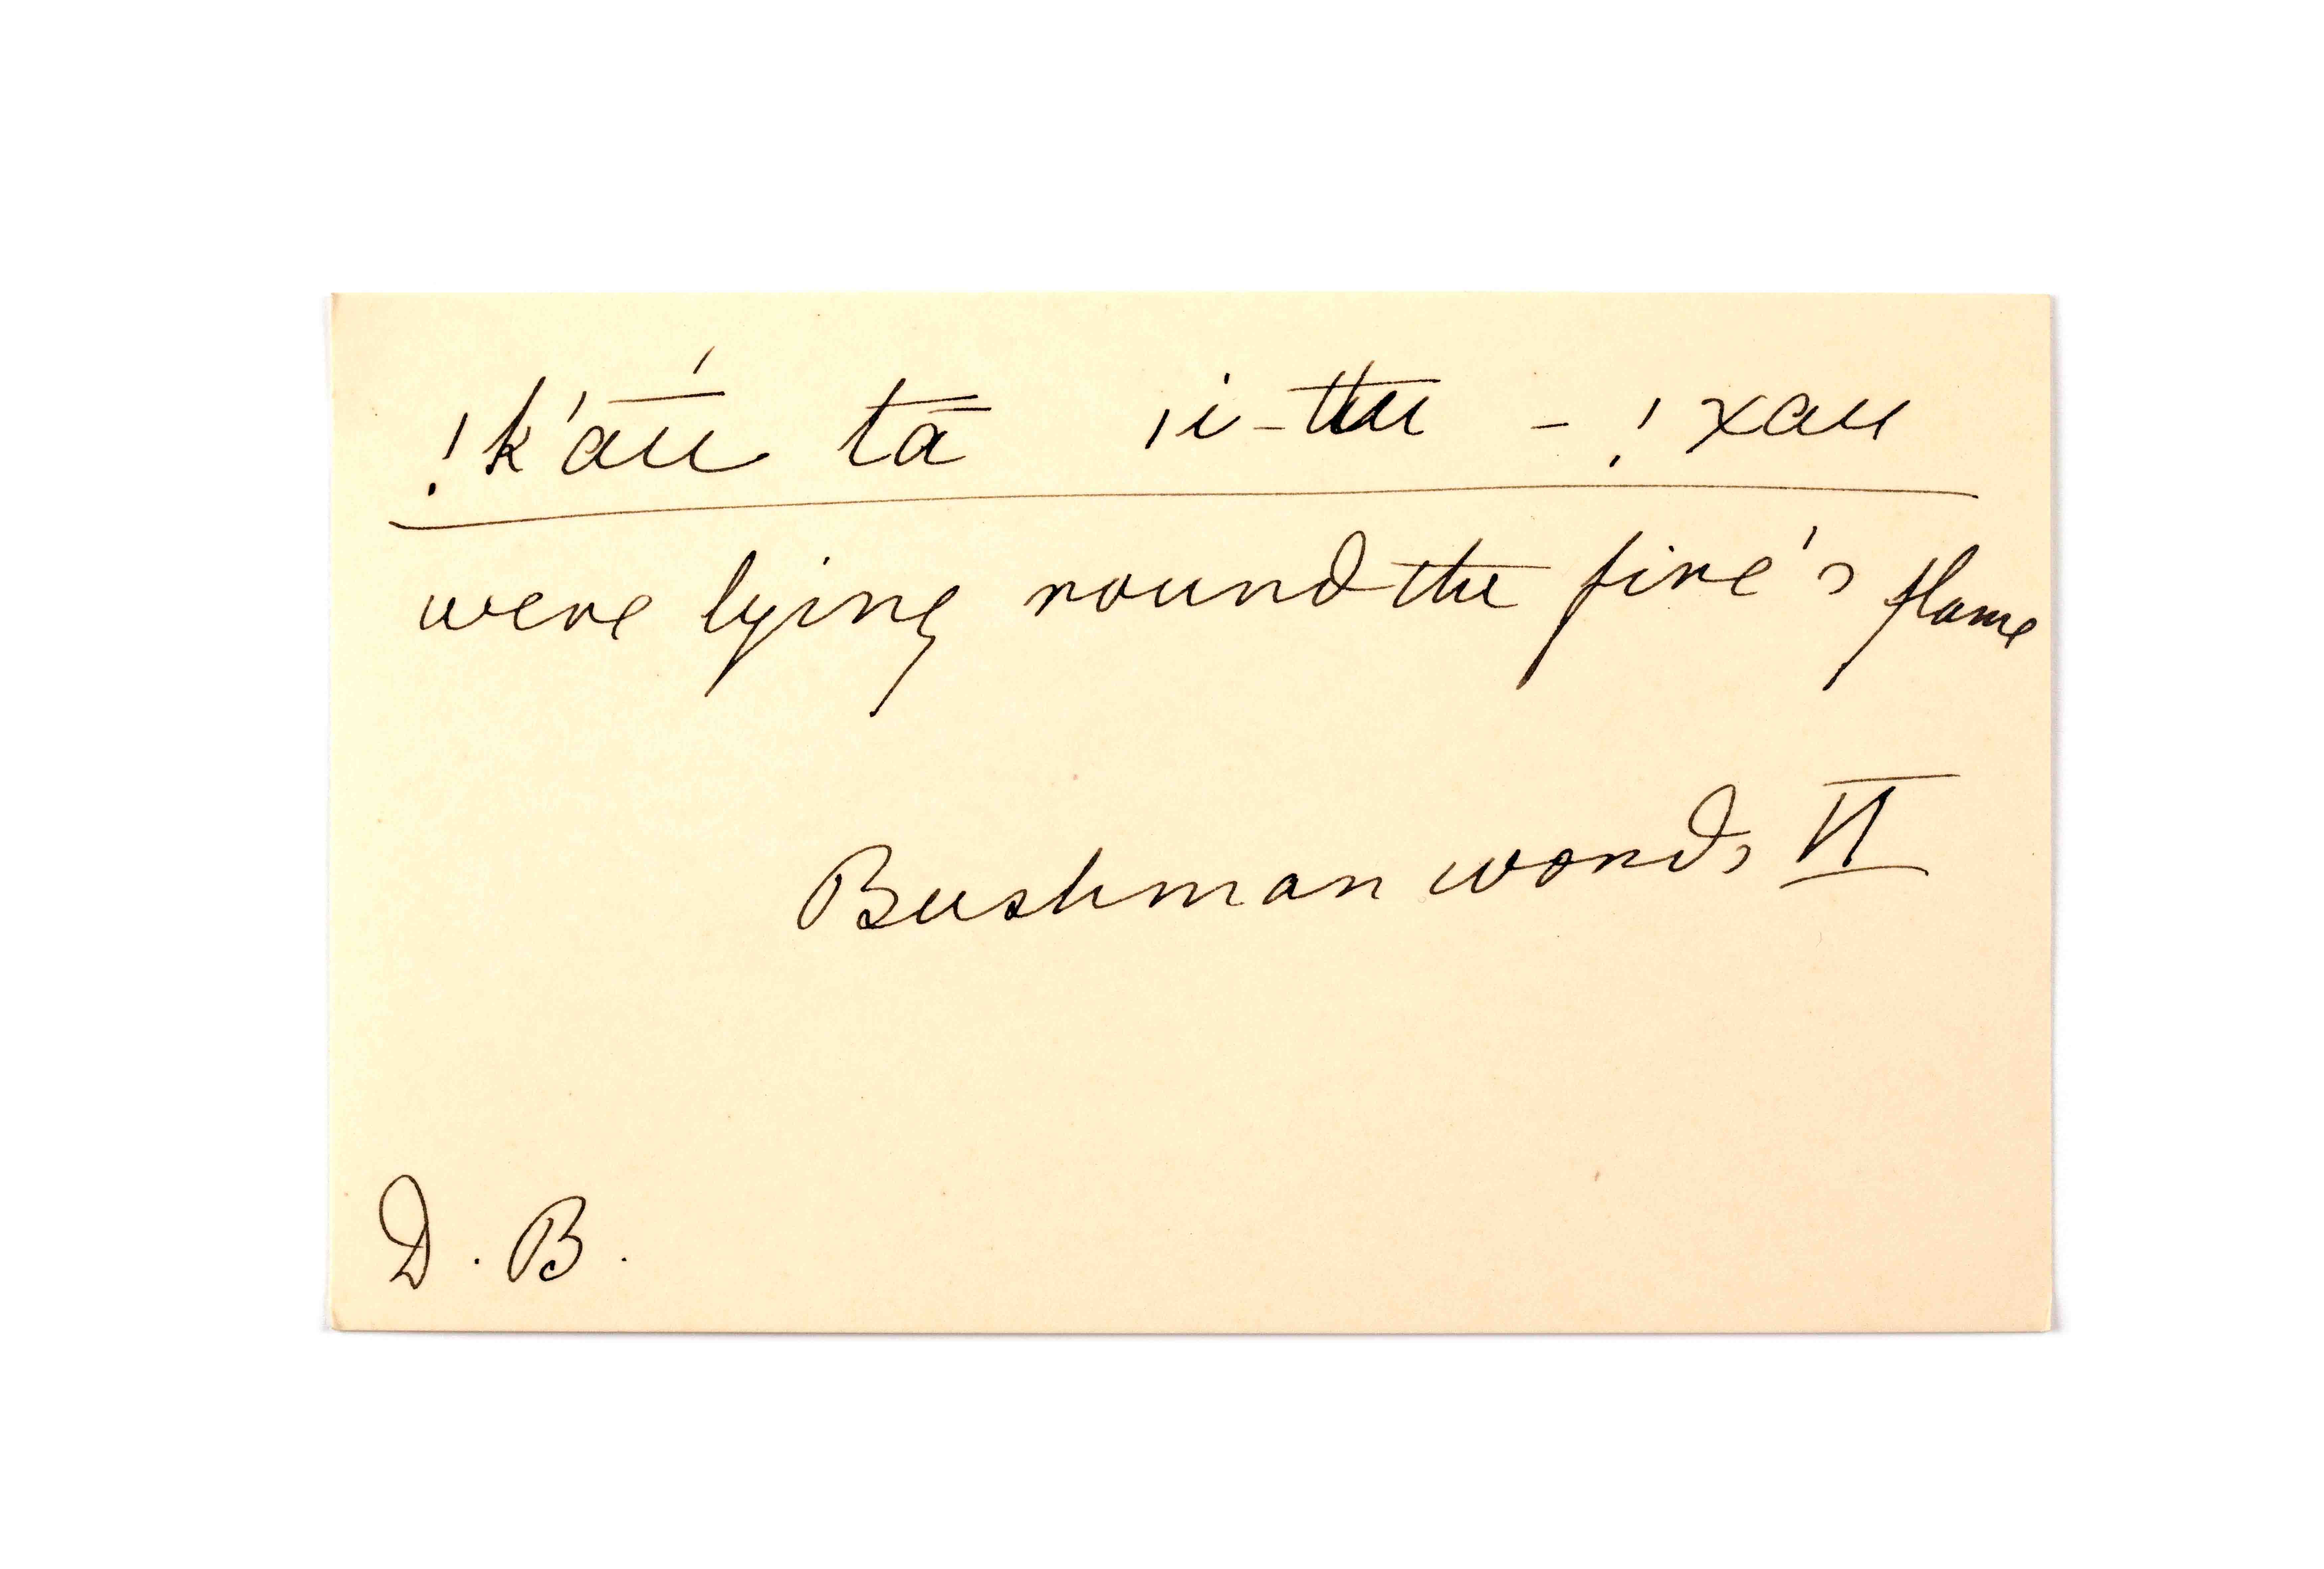 !k'āū́ tā ǀi-ttu - !xau
were lying round the fire's flame
Bushman words VI
D. B.